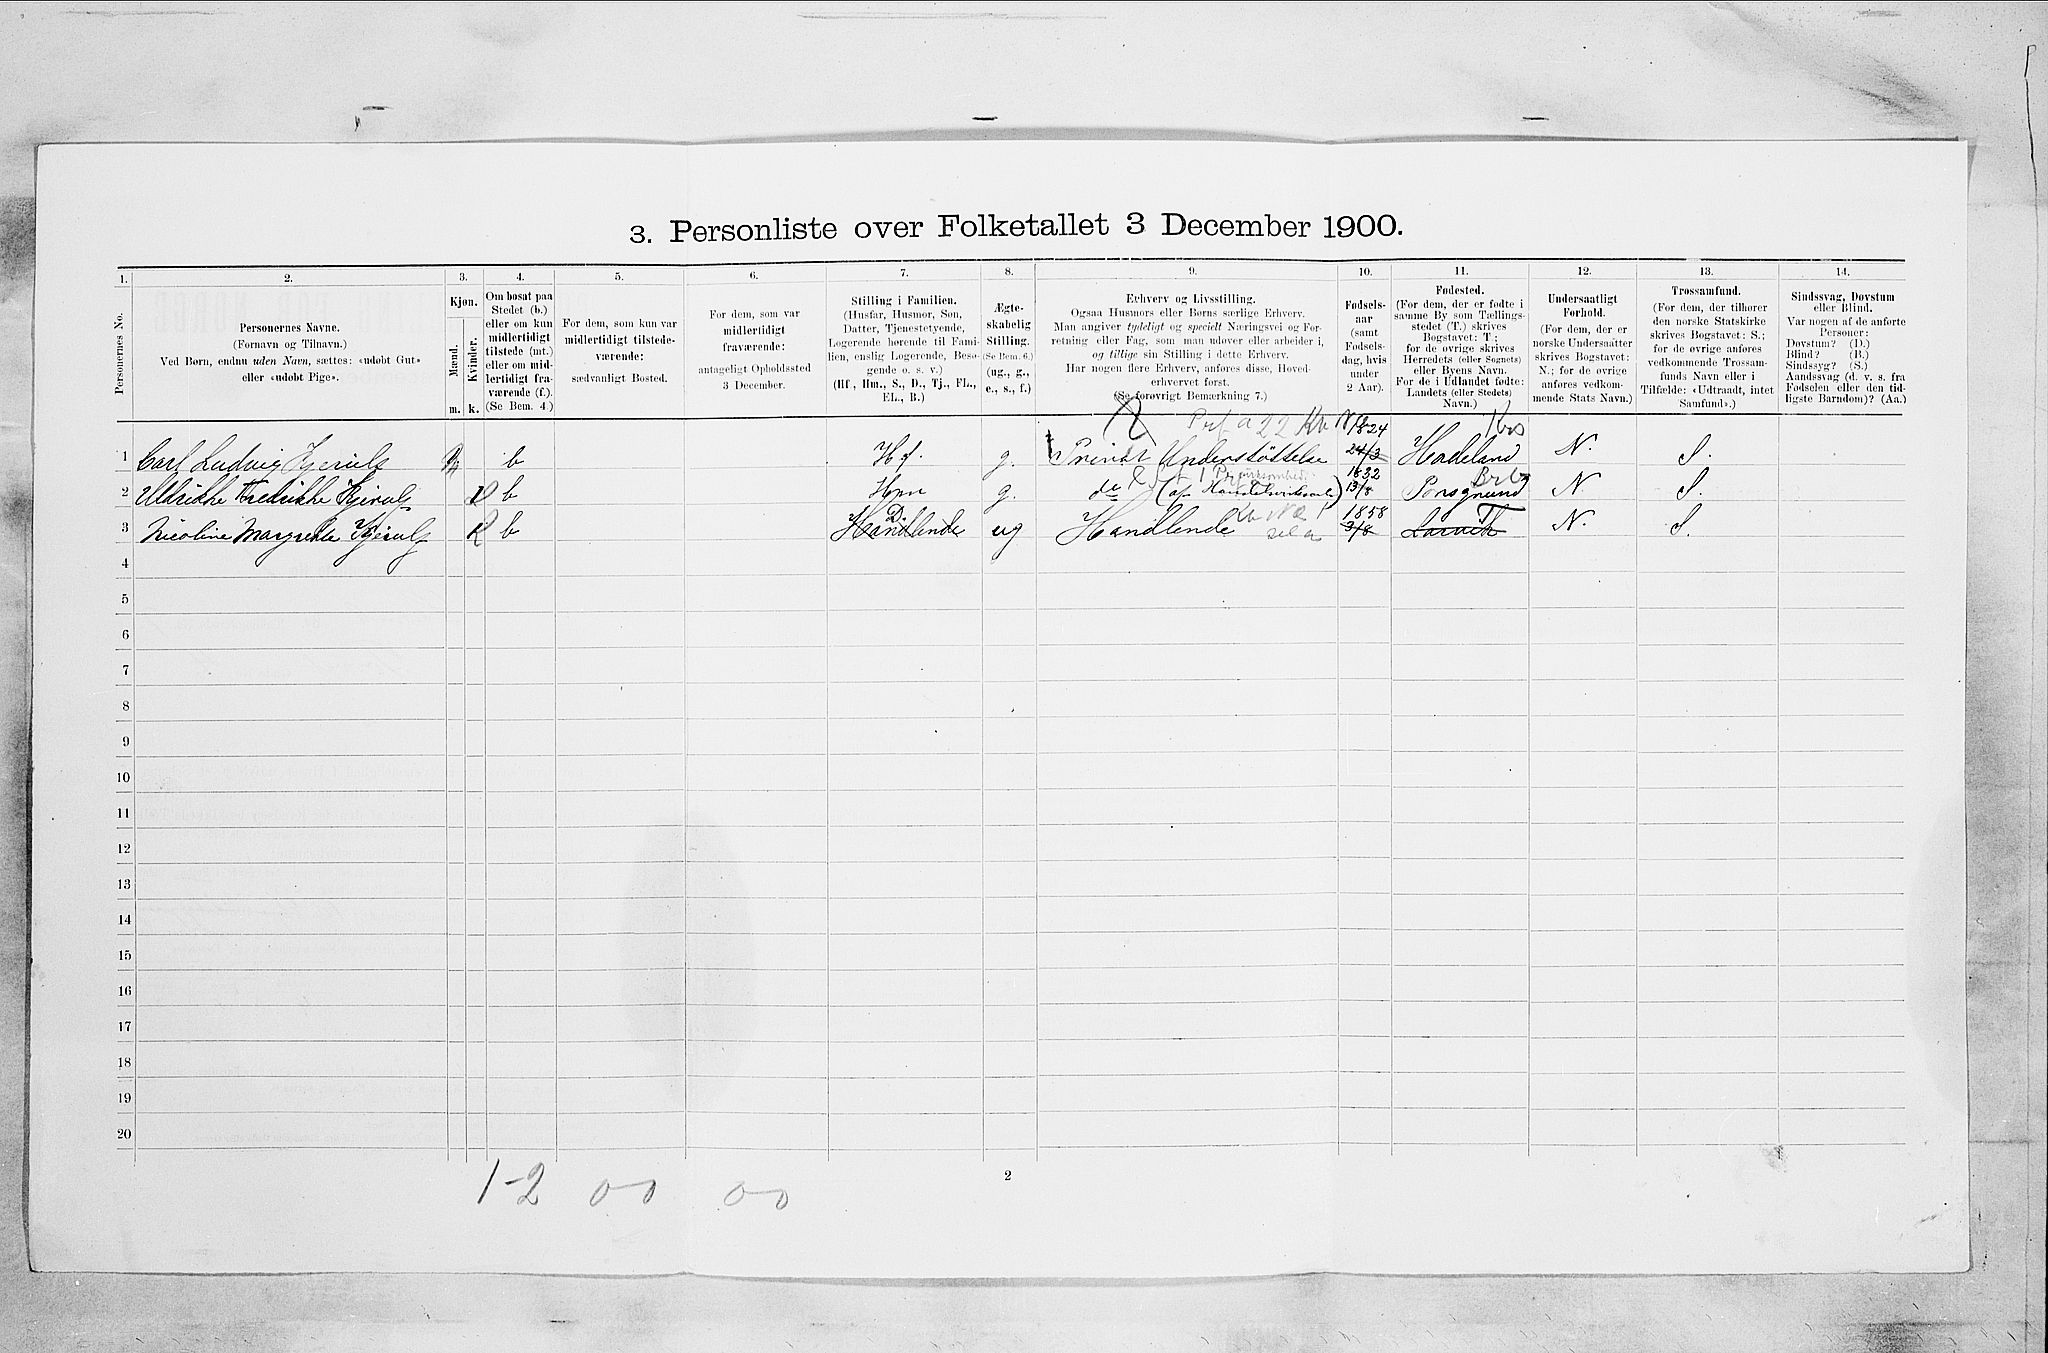 3. Personliste over Folketallet 3 December 1900.
1. 2. 3. 4. 5. 6. 7. 8. 9. 10. 11. 12. 13. 14.
Personernes No.
Personernes Navne.
(Fornavn og Tilnavn.)
Ved Børn, endnu uden Navn, sættes: «udøbt Gut»
eller «udøbt Pige».
Kjøn.
Mænd.
Kvinder.
m. k.
Om bosat paa
Stedet (b.)
eller om kun
midlertidigt
tilstede (mt.)
eller om mid-
lertidigt fra-
værende (f.).
(Se Bem. 4.)
For dem, som kun var
midlertidigt tilstede-
værende:
sædvanligt Bosted.
For dem, som var
midlertidigt
fraværende:
antageligt Opholdssted
3 December.
Stilling i Familien.
(Husfar, Husmor, Søn,
Datter, Tjenestetyende,
Logerende hørende til Fami-
lien, enslig Logerende, Besø-
gende o. s. v.)
(Hf., Hm., S., D., Tj., FL.,
EL., B.)
Ægte-
skabelig
Stilling.
(Se Bem. 6.)
(ug., g.,
e., s., f.)
Erhverv og Livsstilling.
Ogsaa Husmors eller Børns særlige Erhverv.
Man angiver tydeligt og specielt Næringsvei og For-
retning eller Fag, som man udøver eller arbeider i,
og tillige sin Stilling i dette Erhverv.
Har nogen flere Erhverv, anføres disse, Hoved-
erhvervet først.
(Se forøvrigt Bemærkning 7.)
Fødsels-
aar
(samt
Fødsels-
dag, hvis
under
2 Aar).
Fødested.
(For dem, der er fødte i
samme By som Tællings-
stedet (T.) skrives
Bogstavet: T.;
for de øvrige skrives
Herredets (eller Sognets)
eller Byens Navn.
For de i Udlandet fødte:
Landets (eller Stedets)
Navn.)
Undersaatligt
Forhold.
(For dem, der er
norske Undersaatter
skrives Bogstavet:
N.; for de øvrige
anføres vedkom-
mende Stats Navn.)
Trossamfund.
(For dem, der tilhører
den norske Statskirke
skrives Bogstavet: S.;
for de øvrige anføres
vedkommende Trossam-
funds Navn eller i
Tilfælde: «Udtraadt, intet
Samfund».)
Sindssvag, Døvstum
eller Blind.
Var nogen af de anførte
Personer:
Døvstum? (D.)
Blind? (B.)
Sindssyg? (S.)
Aandssvag (d. v. s. fra
Fødselen eller den tid-
ligste Barndom)? (Aa.)
1 Carl Ludvig Kjerulf b Hf. g. Privat Understøttelse 1824 24/3 Hadeland N. S.
2 Uldrikke Fredrikke Kjerulf b Hm g. do (af Handelsvirksomhed) 1832 13/8 Porsgrund N S.
3 Nicoline Margrethe Kjerulf b Handlende D ug Handlende 1858 3/8 Larvik T N. S.
4
5
6
7
8
9
10
11
12
13
14
15
16
17
18
19
20
1-2 0 0 0 0
2